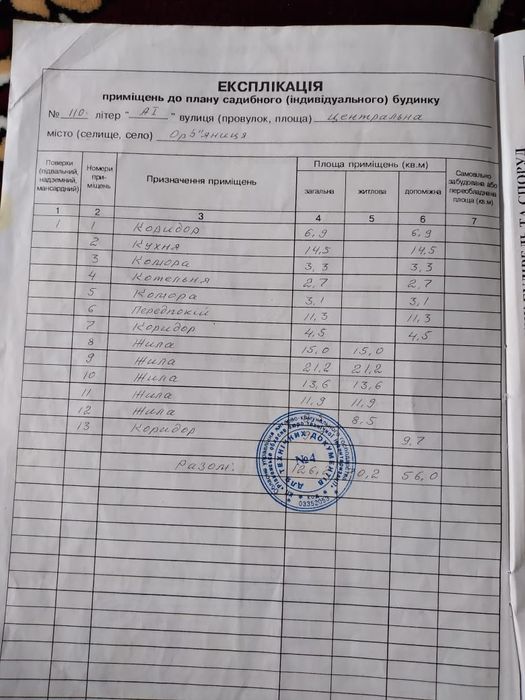 ЕКСПЛІКАЦІЯ
приміщень до плану садибного (індивідуального) будинку
№ 110 літер "АІ" вулиця (провулок, площа) Центральна
місто (селище, село) Орв'яниця
Поверхи (підвальний, надземний, мансардний) Номери приміщень Призначення приміщень Площа приміщень (кв.м) Самовільно збудована або переобладнана площа (кв.м)
загальна житлова допоміжна
1 2 3 4 5 6 7
1 1 Коридор 6,9 6,9
2 Кухня 14,5 14,5
3 Комора 3,3 3,3
4 Котельня 2,7 2,7
5 Комора 3,1 3,1
6 Передпокій 11,3 11,3
7 Коридор 4,5 4,5
8 Жила 15,0 15,0
9 Жила 21,2 21,2
10 Жила 13,6 13,6
11 Жила 11,9 11,9
12 Жила 8,5
13 Коридор 9,7
Разом: 126, 0,2 56,0
ДЛЯ ТЕХНІЧНИХ ДОКУМЕНТІВ
№4